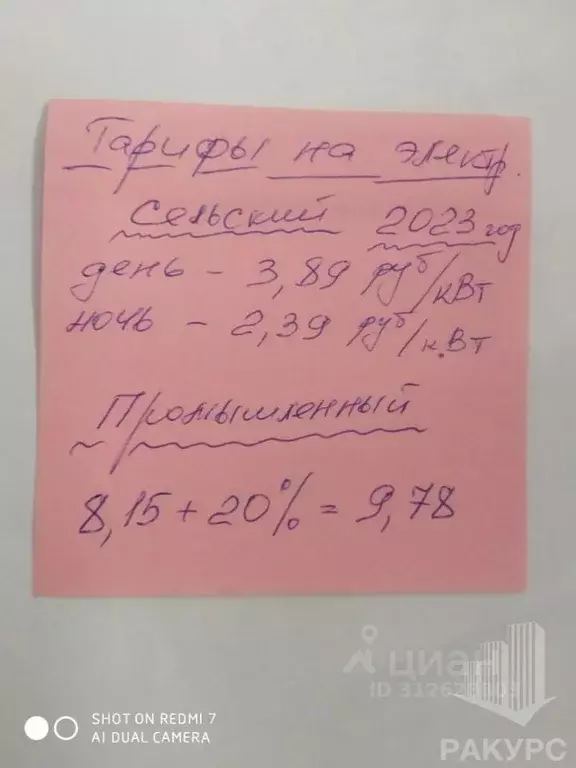 Тарифы на электр.
Сельский 2023 год
день - 3,89 руб/кВт
ночь - 2,39 руб/к.Вт
Промышленный
8,15 + 20% = 9,78
циан
SHOT ON REDMI 7
AI DUAL CAMERA
РАКУРС